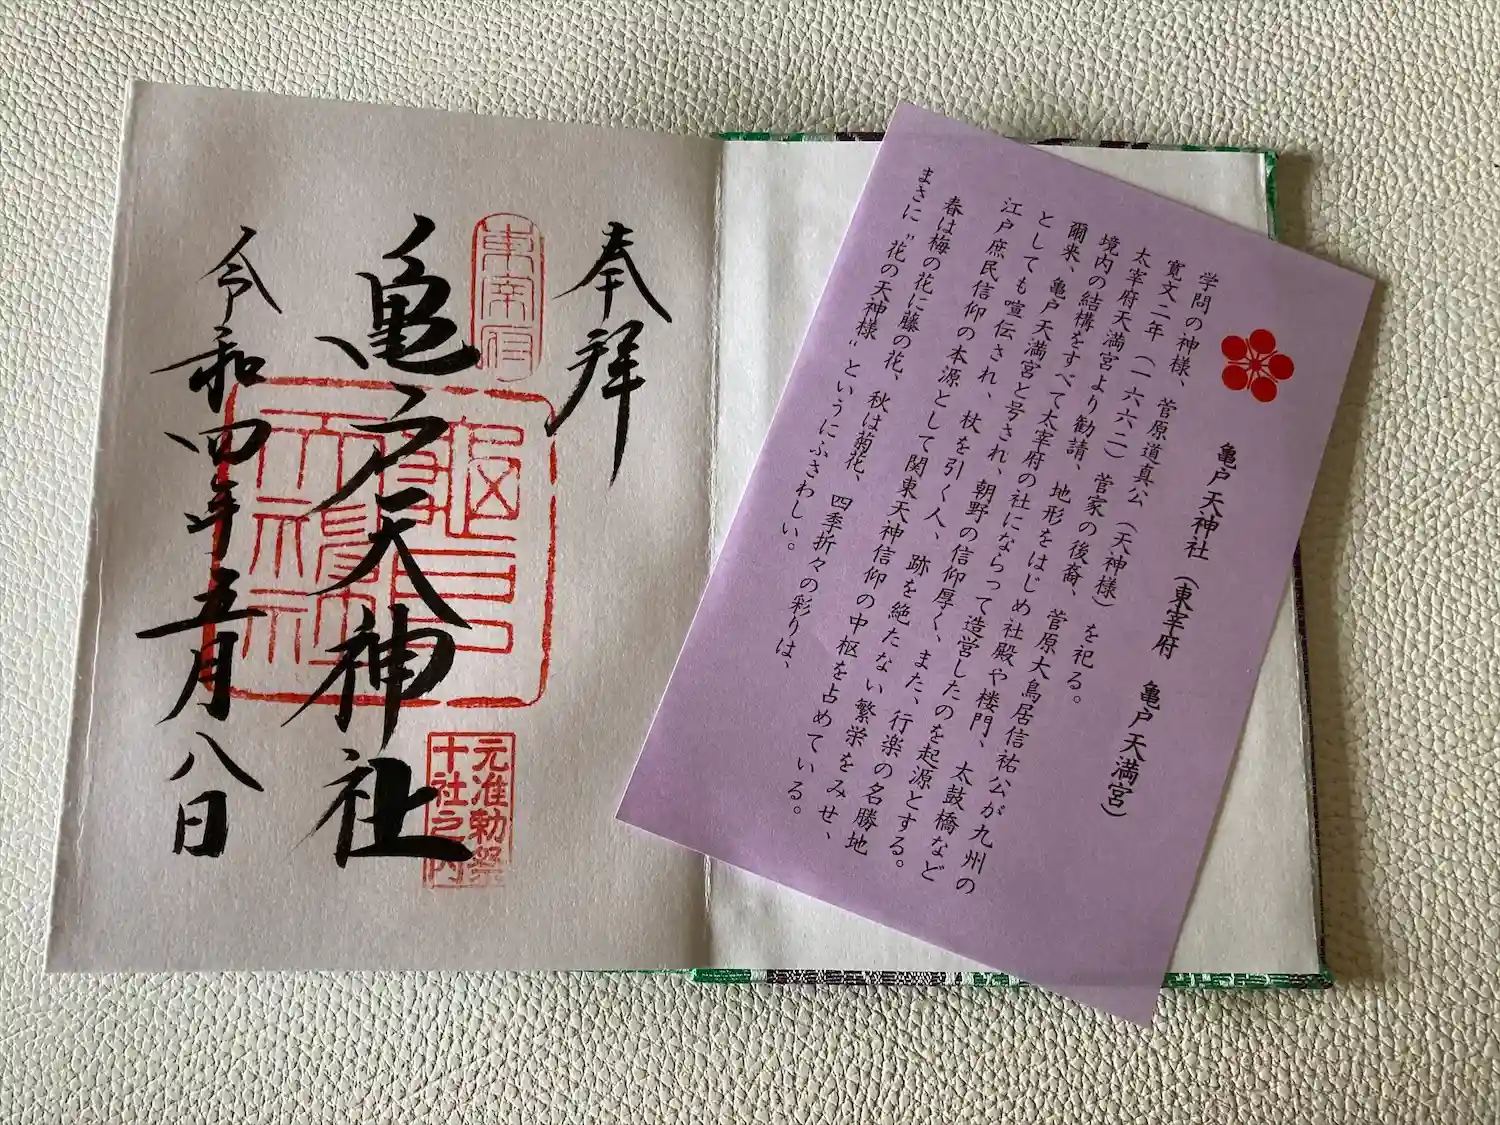 亀戸天神社(東宰府 亀戸天満宮)
学問の神様、菅原道真公(天神様)を祀る。
寛文二年(一六六二)菅家の後裔、菅原大鳥居信祐公が九州の
太宰府天満宮より勧請、地形をはじめ社殿や楼門、太鼓橋など
境内の結構をすべて太宰府の社にならって造営したのを起源とする。
爾来、亀戸天満宮と号され、朝野の信仰厚く、また、行楽の名勝地
としても喧伝され、杖を引く人、跡を絶たない繁栄をみせ、
江戸庶民信仰の本源として関東天神信仰の中枢を占めている。
春は梅の花に藤の花、秋は菊花、四季折々の彩りは、
まさに〝花の天神様〟というにふさわしい。
奉拝
東宰府
元准勅祭
十社之内
亀戸天神社
令和四年五月八日